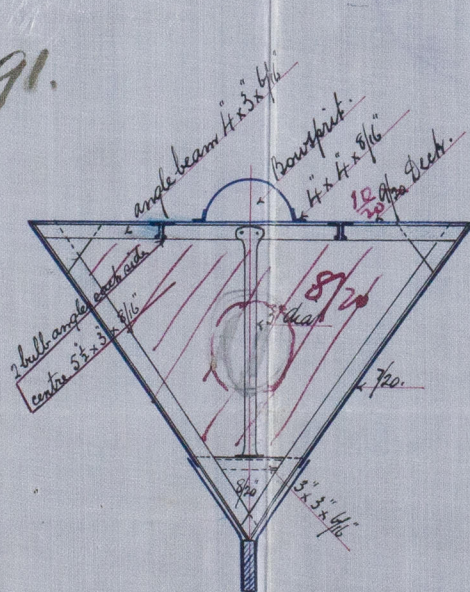 91.
angle beam 4" x 3" x 6/16"
Bowsprit.
4" x 4" x 8/16"
10/20 9/20 Deck.
2 bulb angles each side
centre 5½" x 3" x 8/16"
8/20
3" dia
7/20.
8/20"
3" x 3" x 6/16"